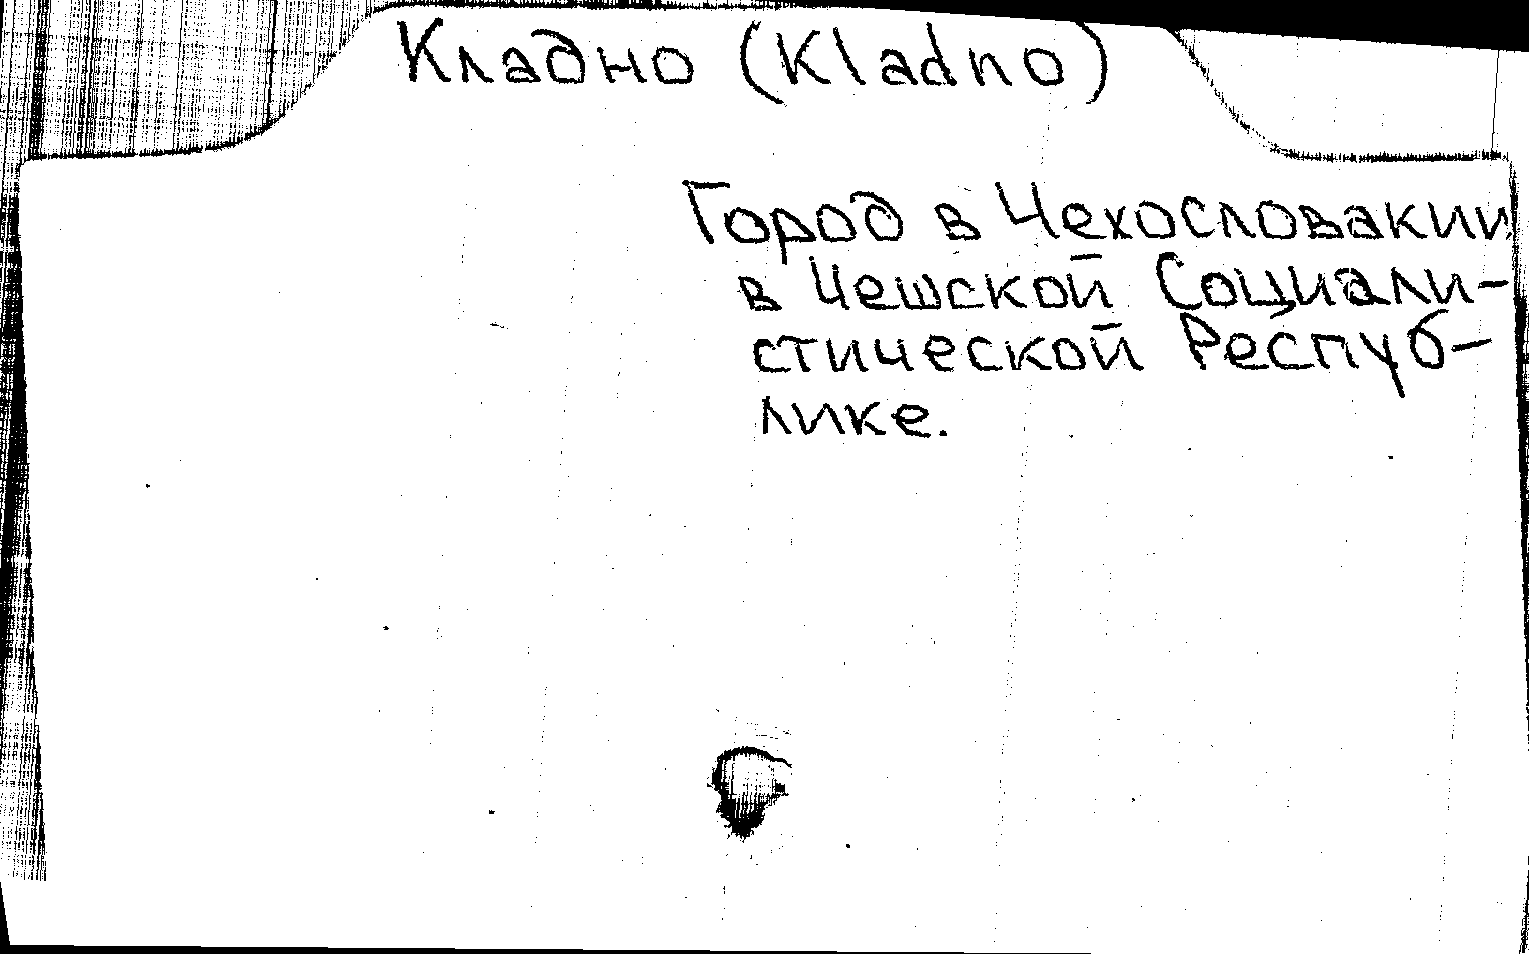 Кладно (Kladno)
Город в Чехословакии
в Чешской Социали-
стической Респуб-
лике.